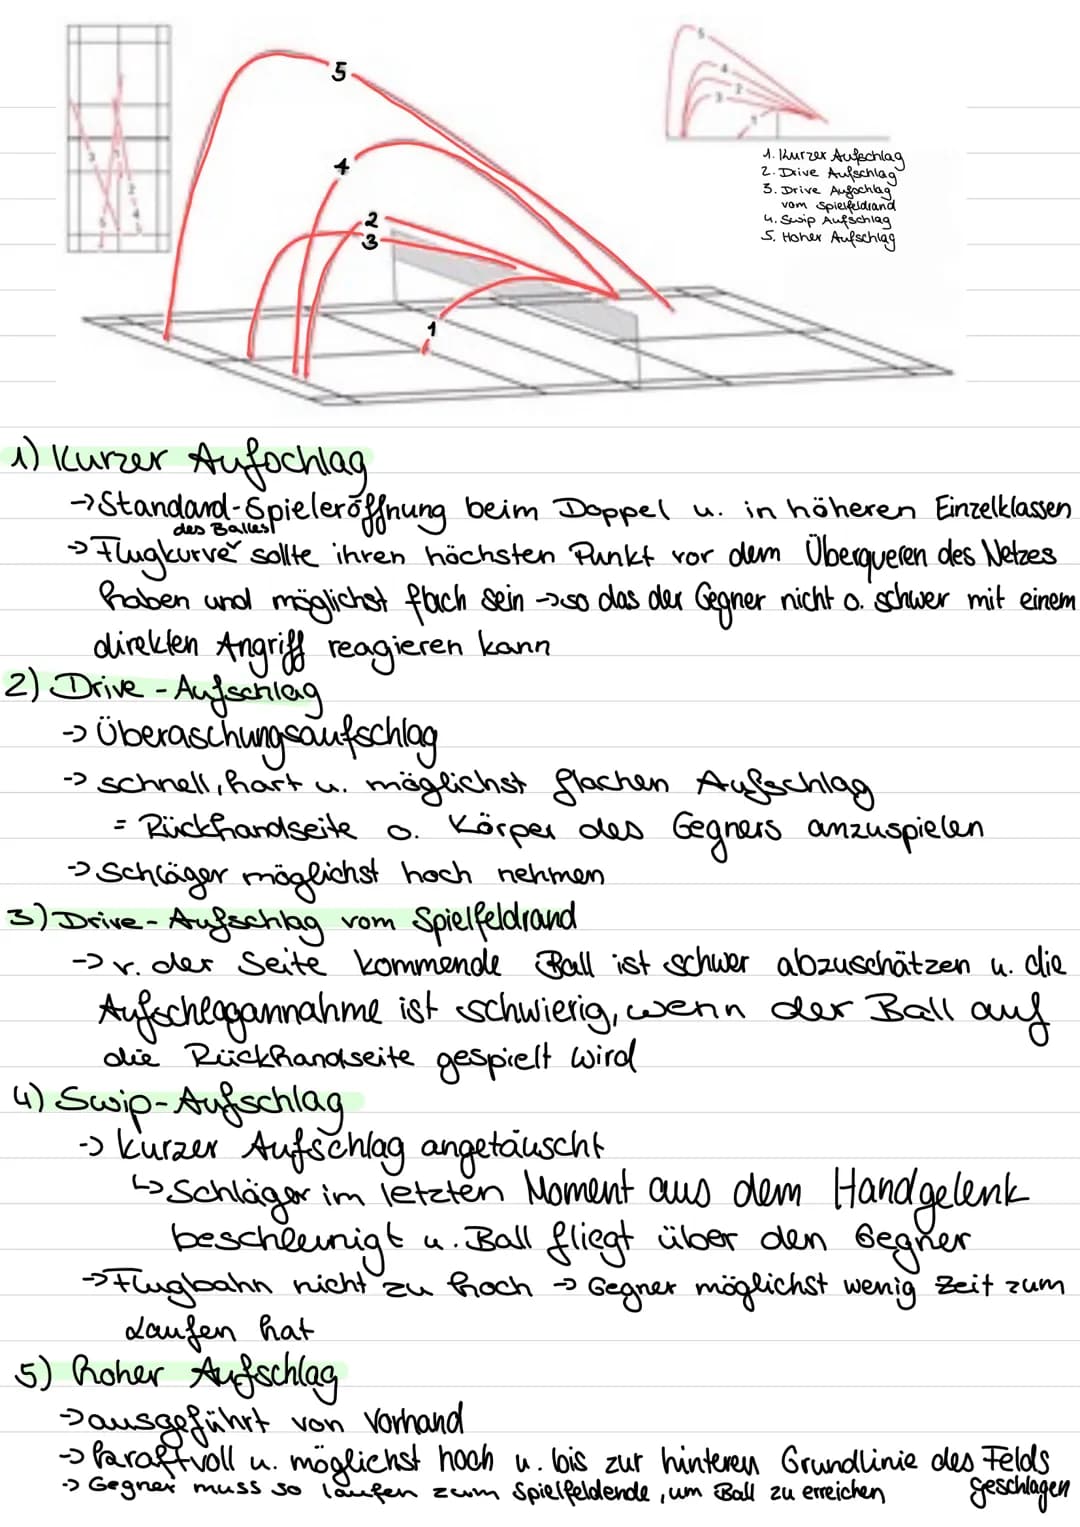 5
4
2
3
1
5
4
2
3
1
1. Kurzer Aufschlag
2. Drive Aufschlag
3. Drive Aufschlag
vom Spielfeldrand
4. Swip Aufschlag
5. Hoher Aufschlag
1) Kurzer Aufschlag
→ Standard-Spieleröffnung beim Doppel u. in höheren Einzelklassen
des Balles
→ Flugkurve sollte ihren höchsten Punkt vor dem Überqueren des Netzes
haben und möglichst flach sein → so das der Gegner nicht o. schwer mit einem
direkten Angriff reagieren kann
2) Drive - Aufschlag
→ Überaschungsaufschlag
→ schnell, hart u. möglichst flachen Aufschlag
= Rückhandseite o. Körper des Gegners anzuspielen
→ Schläger möglichst hoch nehmen
3) Drive - Aufschlag vom Spielfeldrand
→ v. der Seite kommende Ball ist schwer abzuschätzen u. die
Aufschlagannahme ist schwierig, wenn der Ball auf
die Rückhandseite gespielt wird
4) Swip-Aufschlag
→ kurzer Aufschlag angetäuscht
↳ Schläger im letzten Moment aus dem Handgelenk
beschleunigt u. Ball fliegt über den Gegner
→ Flugbahn nicht zu hoch → Gegner möglichst wenig Zeit zum
Laufen hat
5) hoher Aufschlag
→ ausgeführt von Vorhand
→ kraftvoll u. möglichst hoch u. bis zur hinteren Grundlinie des Felds
geschlagen
→ Gegner muss so laufen zum Spielfeldende, um Ball zu erreichen